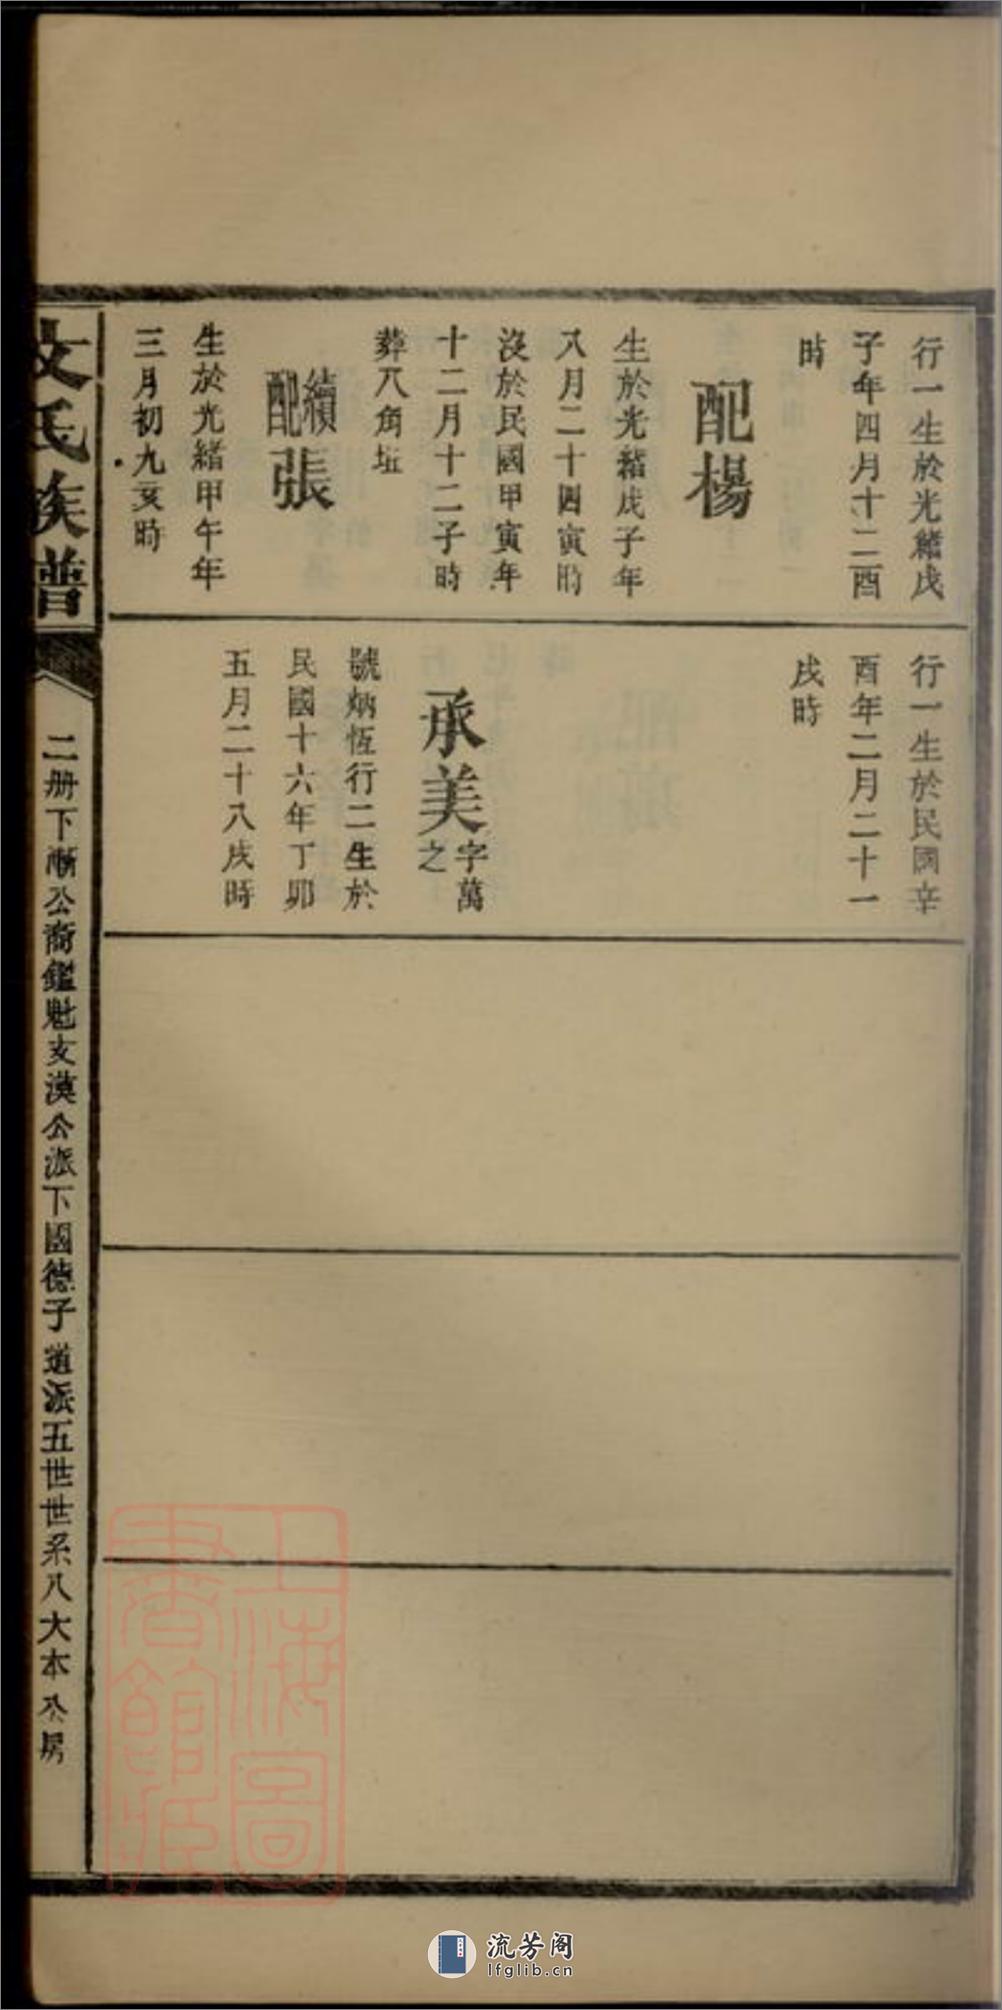 行一生於光緒戊
子年四月十二酉
時
配楊
生於光緒戊子年
八月二十四寅時
沒於民國甲寅年
十二月十二子時
葬八角坵
續配張
生於光緒甲午年
三月初九亥時
行一生於民國辛
酉年二月二十一
戌時
承美字萬之
號炳恆行二生於
民國十六年丁卯
五月二十八戌時
文氏族譜
二册下漸公裔鑑魁支漢公派下國德子道派五世世系八大本公房
上海圖書館藏
流芳阁
lfglib.cn